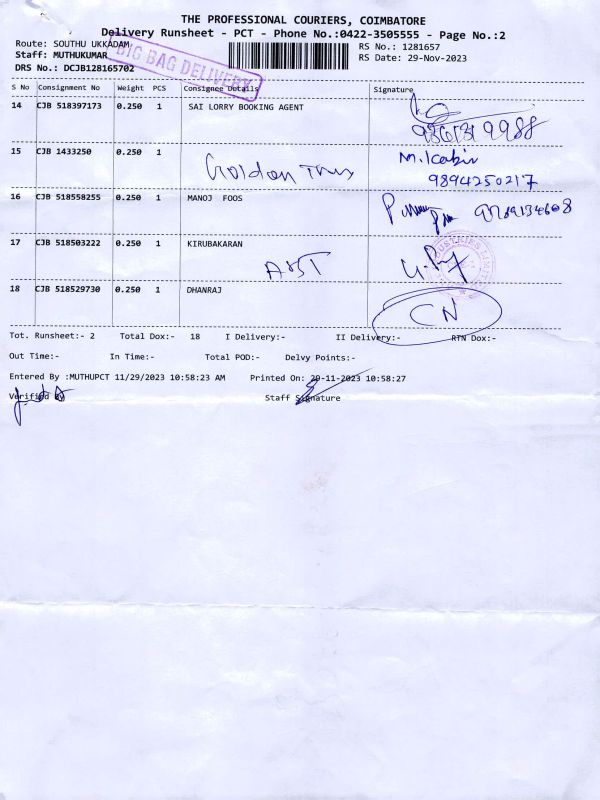 THE PROFESSIONAL COURIERS, COIMBATORE
Delivery Runsheet - PCT - Phone No.:0422-3505555 - Page No.:2
Route: SOUTHU UKKADAM
Staff: MUTHUKUMAR
DRS No.: DCJB128165702
BIG BAG DELIVERY
RS No.: 1281657
RS Date: 29-Nov-2023
S No Consignment No Weight PCS Consignee Details Signature
14 CJB 518397173 0.250 1 SAI LORRY BOOKING AGENT
15 CJB 1433250 0.250 1 Golden
M. Kabir
9894250217
16 CJB 518558255 0.250 1 MANOJ FOOS
17 CJB 518503222 0.250 1 KIRUBAKARAN
18 CJB 518529730 0.250 1 DHANRAJ CN
Tot. Runsheet:- 2 Total Dox:- 18 I Delivery:- II Delivery:- RTN Dox:-
Out Time:- In Time:- Total POD:- Delvy Points:-
Entered By :MUTHUPCT 11/29/2023 10:58:23 AM Printed On: 29-11-2023 10:58:27
Verified By Staff Signature